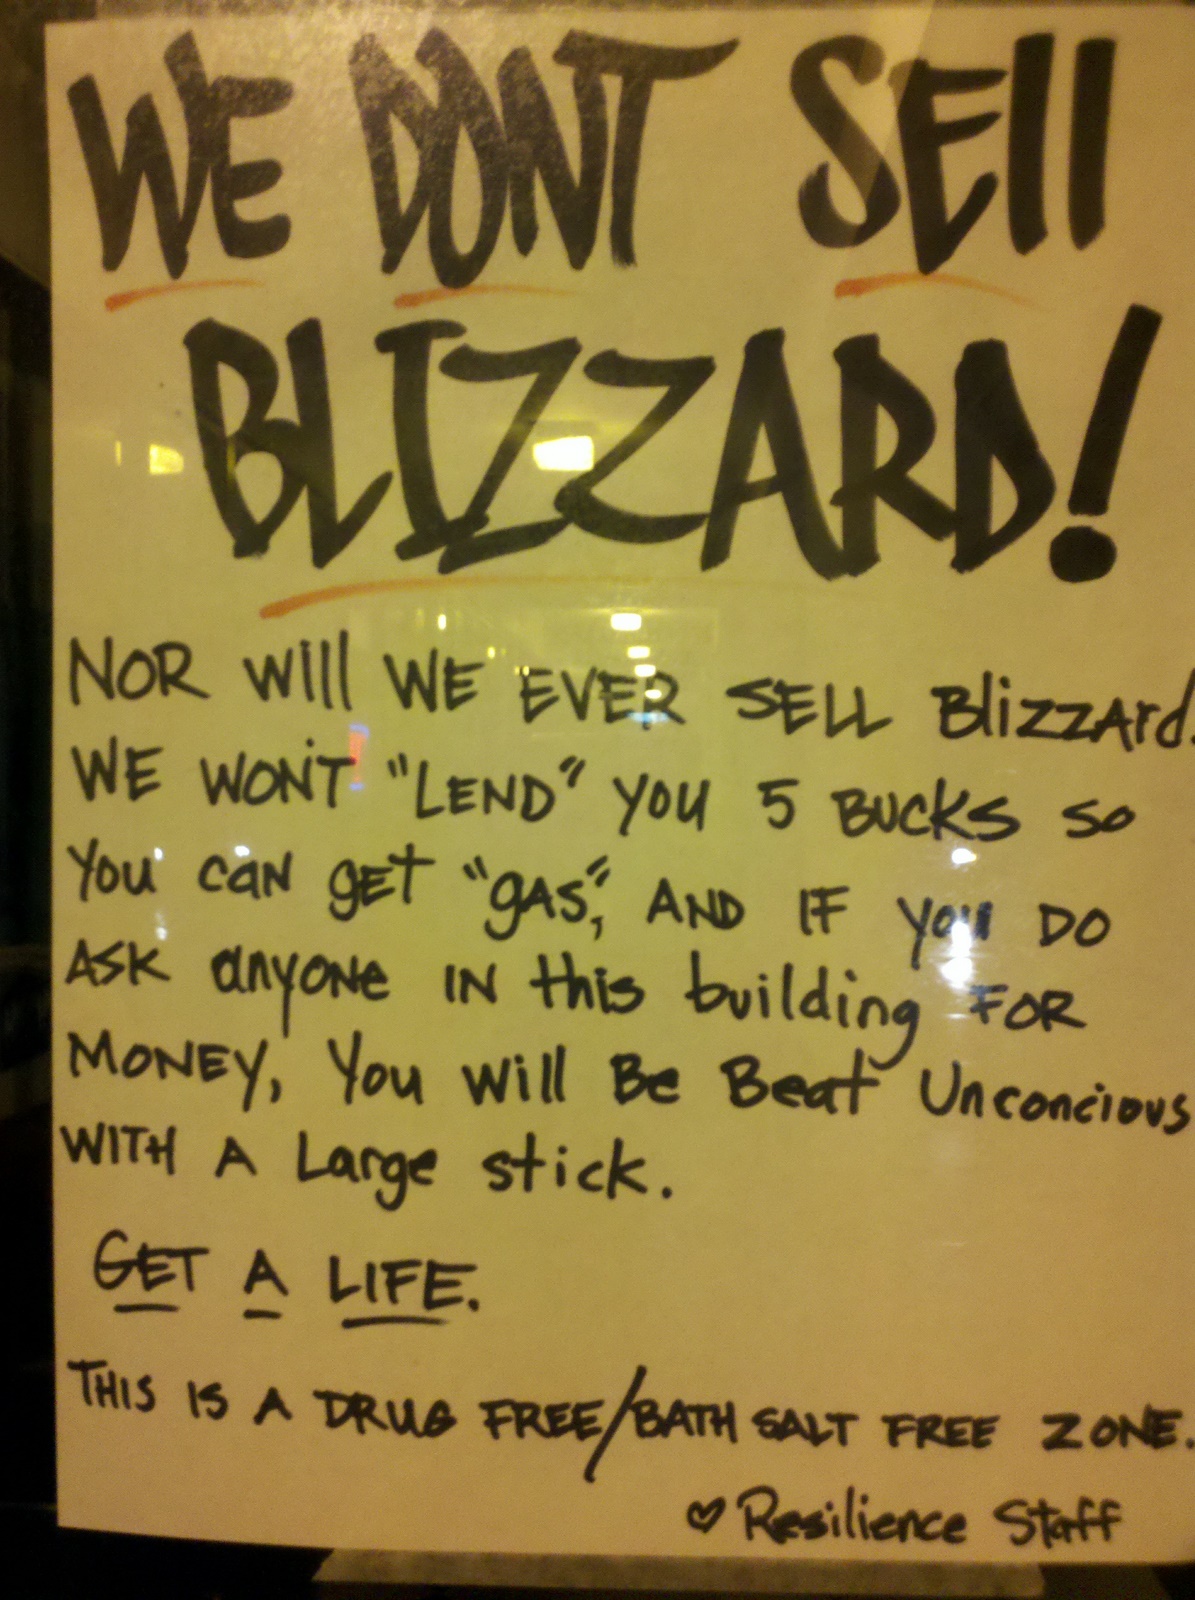 WE DONT SEll
BLIZZARD!
NOR Will WE EVER SELL Blizzard.
WE WON'T "LEND" you 5 BUCKS so
you can get "gas", AND IF you DO
ASK anyone IN this building FOR
MONEY, You will Be Beat Unconcious
WITH A Large stick.
GET A LIFE.
THIS IS A DRUG FREE/BATH SALT FREE ZONE.
♥ Resilience Staff